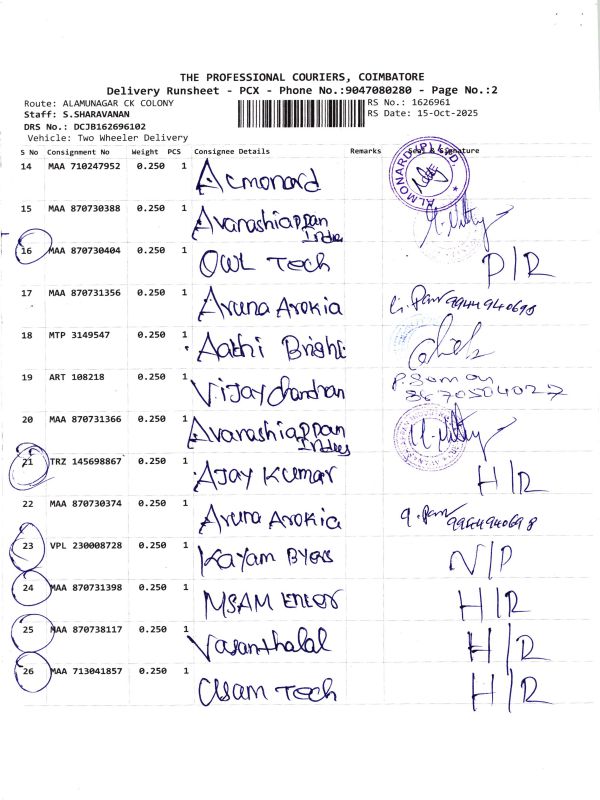 THE PROFESSIONAL COURIERS, COIMBATORE
Delivery Runsheet - PCX - Phone No.:9047080280 - Page No.:2
Route: ALAMUNAGAR CK COLONY RS No.: 1626961
Staff: S.SHARAVANAN RS Date: 15-Oct-2025
DRS No.: DCJB162696102
Vehicle: Two Wheeler Delivery
S No Consignment No Weight PCS Consignee Details Remarks Seal & Signature
14 MAA 710247952 0.250 1 Acmonard ALMONARD (P) LTD.
15 MAA 870730388 0.250 1 Avarashiappan Indes
16 MAA 870730404 0.250 1 OWL Tech D/R
17 MAA 870731356 0.250 1 Aruna Arokia 9944940698
18 MTP 3149547 0.250 1 Aathi Bright
19 ART 108218 0.250 1 Vijay Chandran
20 MAA 870731366 0.250 1 Avarashiappan Indes
21 TRZ 145698867 0.250 1 AJAY KUMAR H/R
22 MAA 870730374 0.250 1 Aruna Arokia 9944940698
23 VPL 230008728 0.250 1 Kayam Byers N/P
24 MAA 870731398 0.250 1 MSAM Enter H/R
25 MAA 870738117 0.250 1 Vasanthalal H/R
26 MAA 713041857 0.250 1 Cham Tech H/R